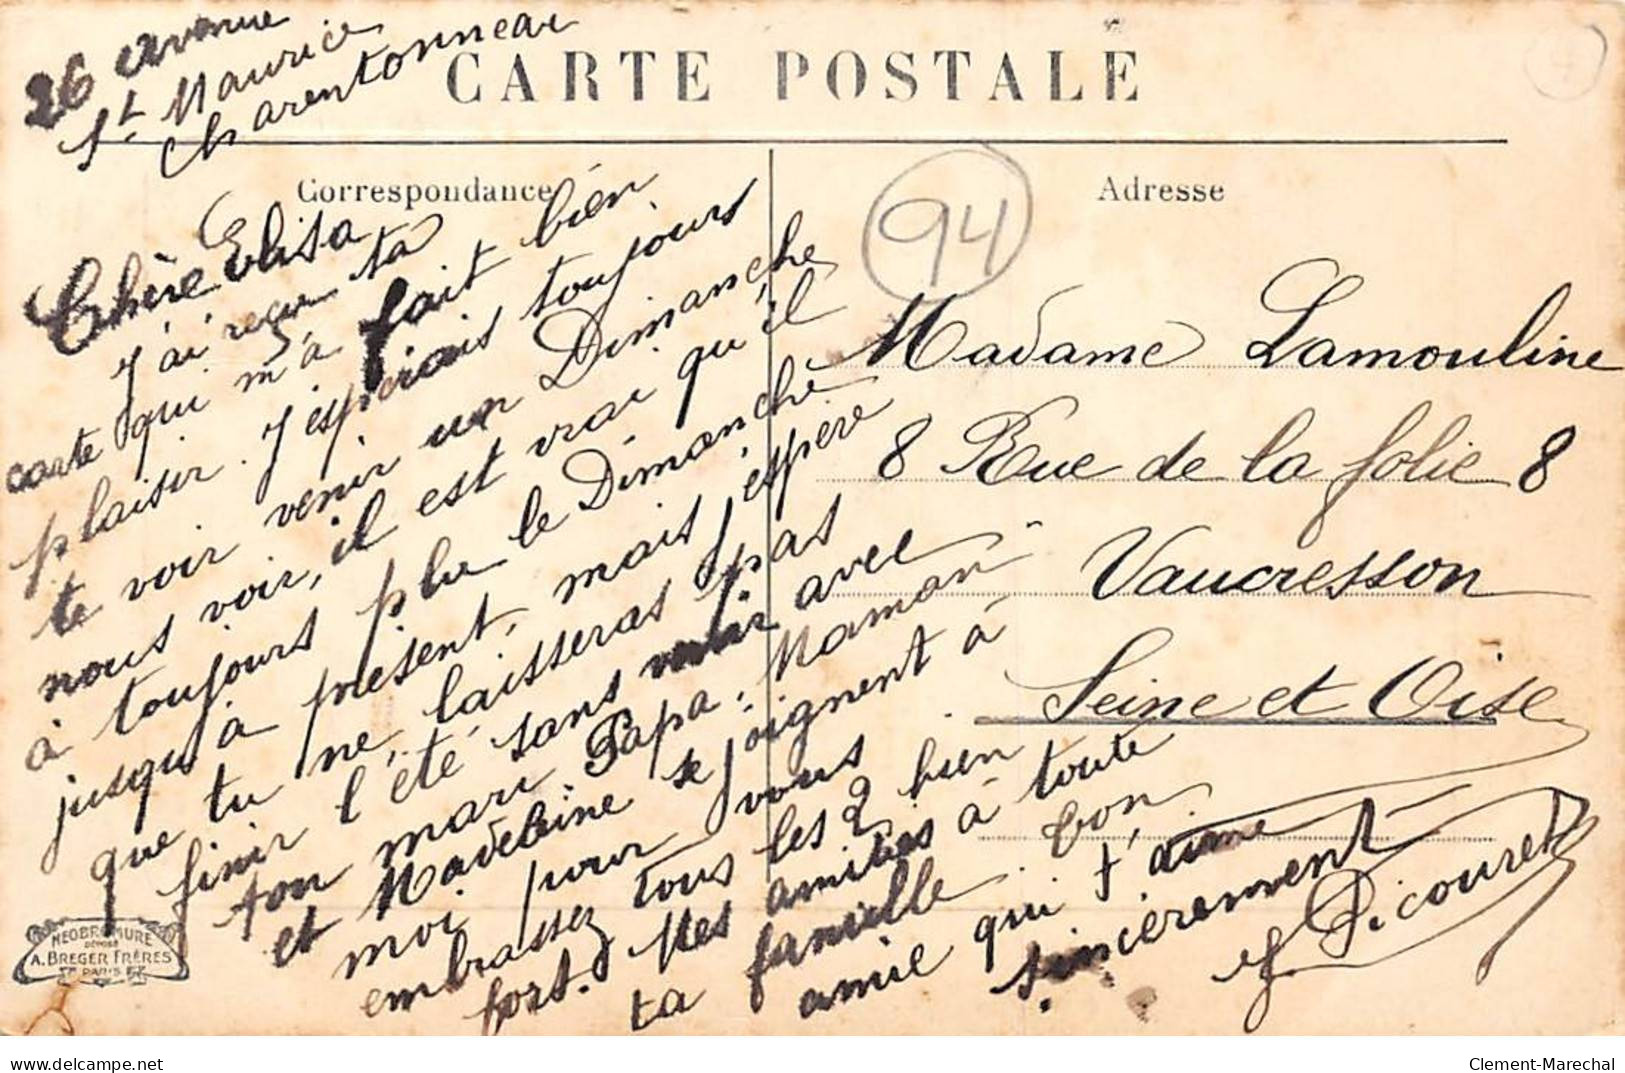 26 avenue
St Maurice
Charentonneau
CARTE POSTALE
Correspondance
Adresse
94
Chère Elisa
J'ai reçue ta
carte qui m'a fait bien
plaisir. J'espérais toujours
te voir venir un Dimanche
nous voir, il est vrai qu'il
à toujours plu le Dimanche
jusqu'à présent, mais j'espère
que tu ne laisseras pas
finir l'été sans venir avec
ton mari Papa, Maman
et Madeleine se joignent à
moi pour vous
embrassez tous les 2 bien
fort. Mes amitiés à toute
ta famille bon
amie qui t'aime
sincèrement
Picouret
Madame Lamouline
8 Rue de la folie 8
Vaucresson
Seine et Oise
NEOBROMURE
DÉPOSÉ
A. BREGER FRÈRES
PARIS
delcampe.net
Clement-Marechal